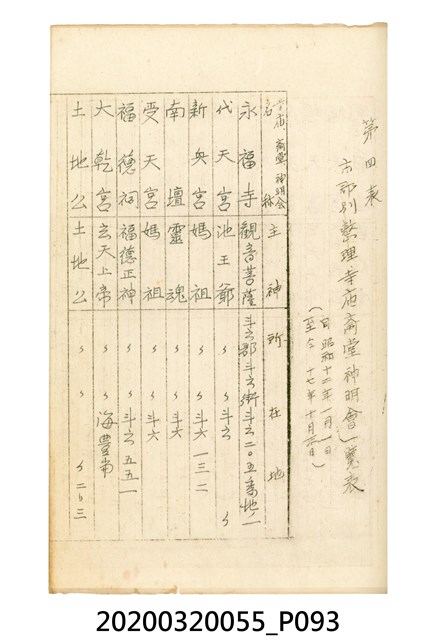 第四表
市郡別整理寺廟斎堂神明會一覽表
(自昭和十二年一月一日
至〃十七年十月 日)
寺廟、斎堂神明会名称 主神 所在地
永福寺 觀音菩薩 斗六郡斗六街斗六二〇五番地ノ一
代天宮 池王爺 〃 〃斗六 〃
新興宮 媽祖 〃 〃斗六 一三二
南壇 靈魂 〃 〃斗六
受天宮 媽祖 〃 〃斗六
福德祠 福德正神 〃 〃斗六 五五一
大乾宮 玄天上帝 〃 〃海豊崙
土地公 土地公 〃 〃 〃 二一三
20200320055_P093